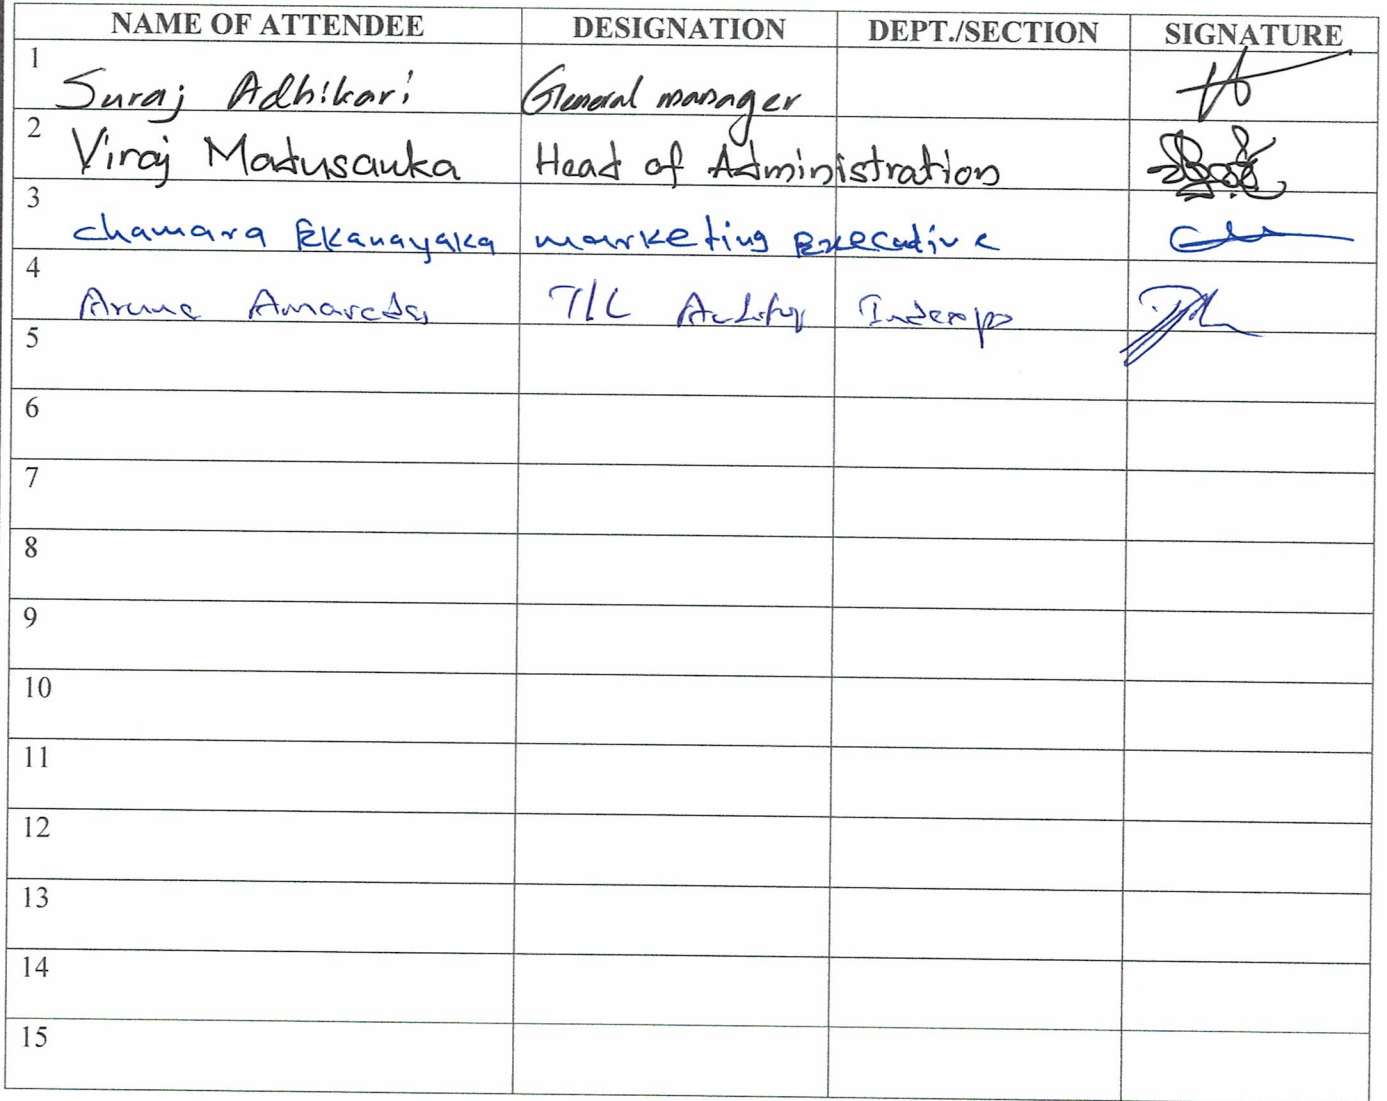 NAME OF ATTENDEE DESIGNATION DEPT./SECTION SIGNATURE
1 Suraj Adhikari General manager
2 Viraj Madusanka Head of Administration
3 chamara Ekanayaka marketing Executive
4 Aruna T/L
5
6
7
8
9
10
11
12
13
14
15